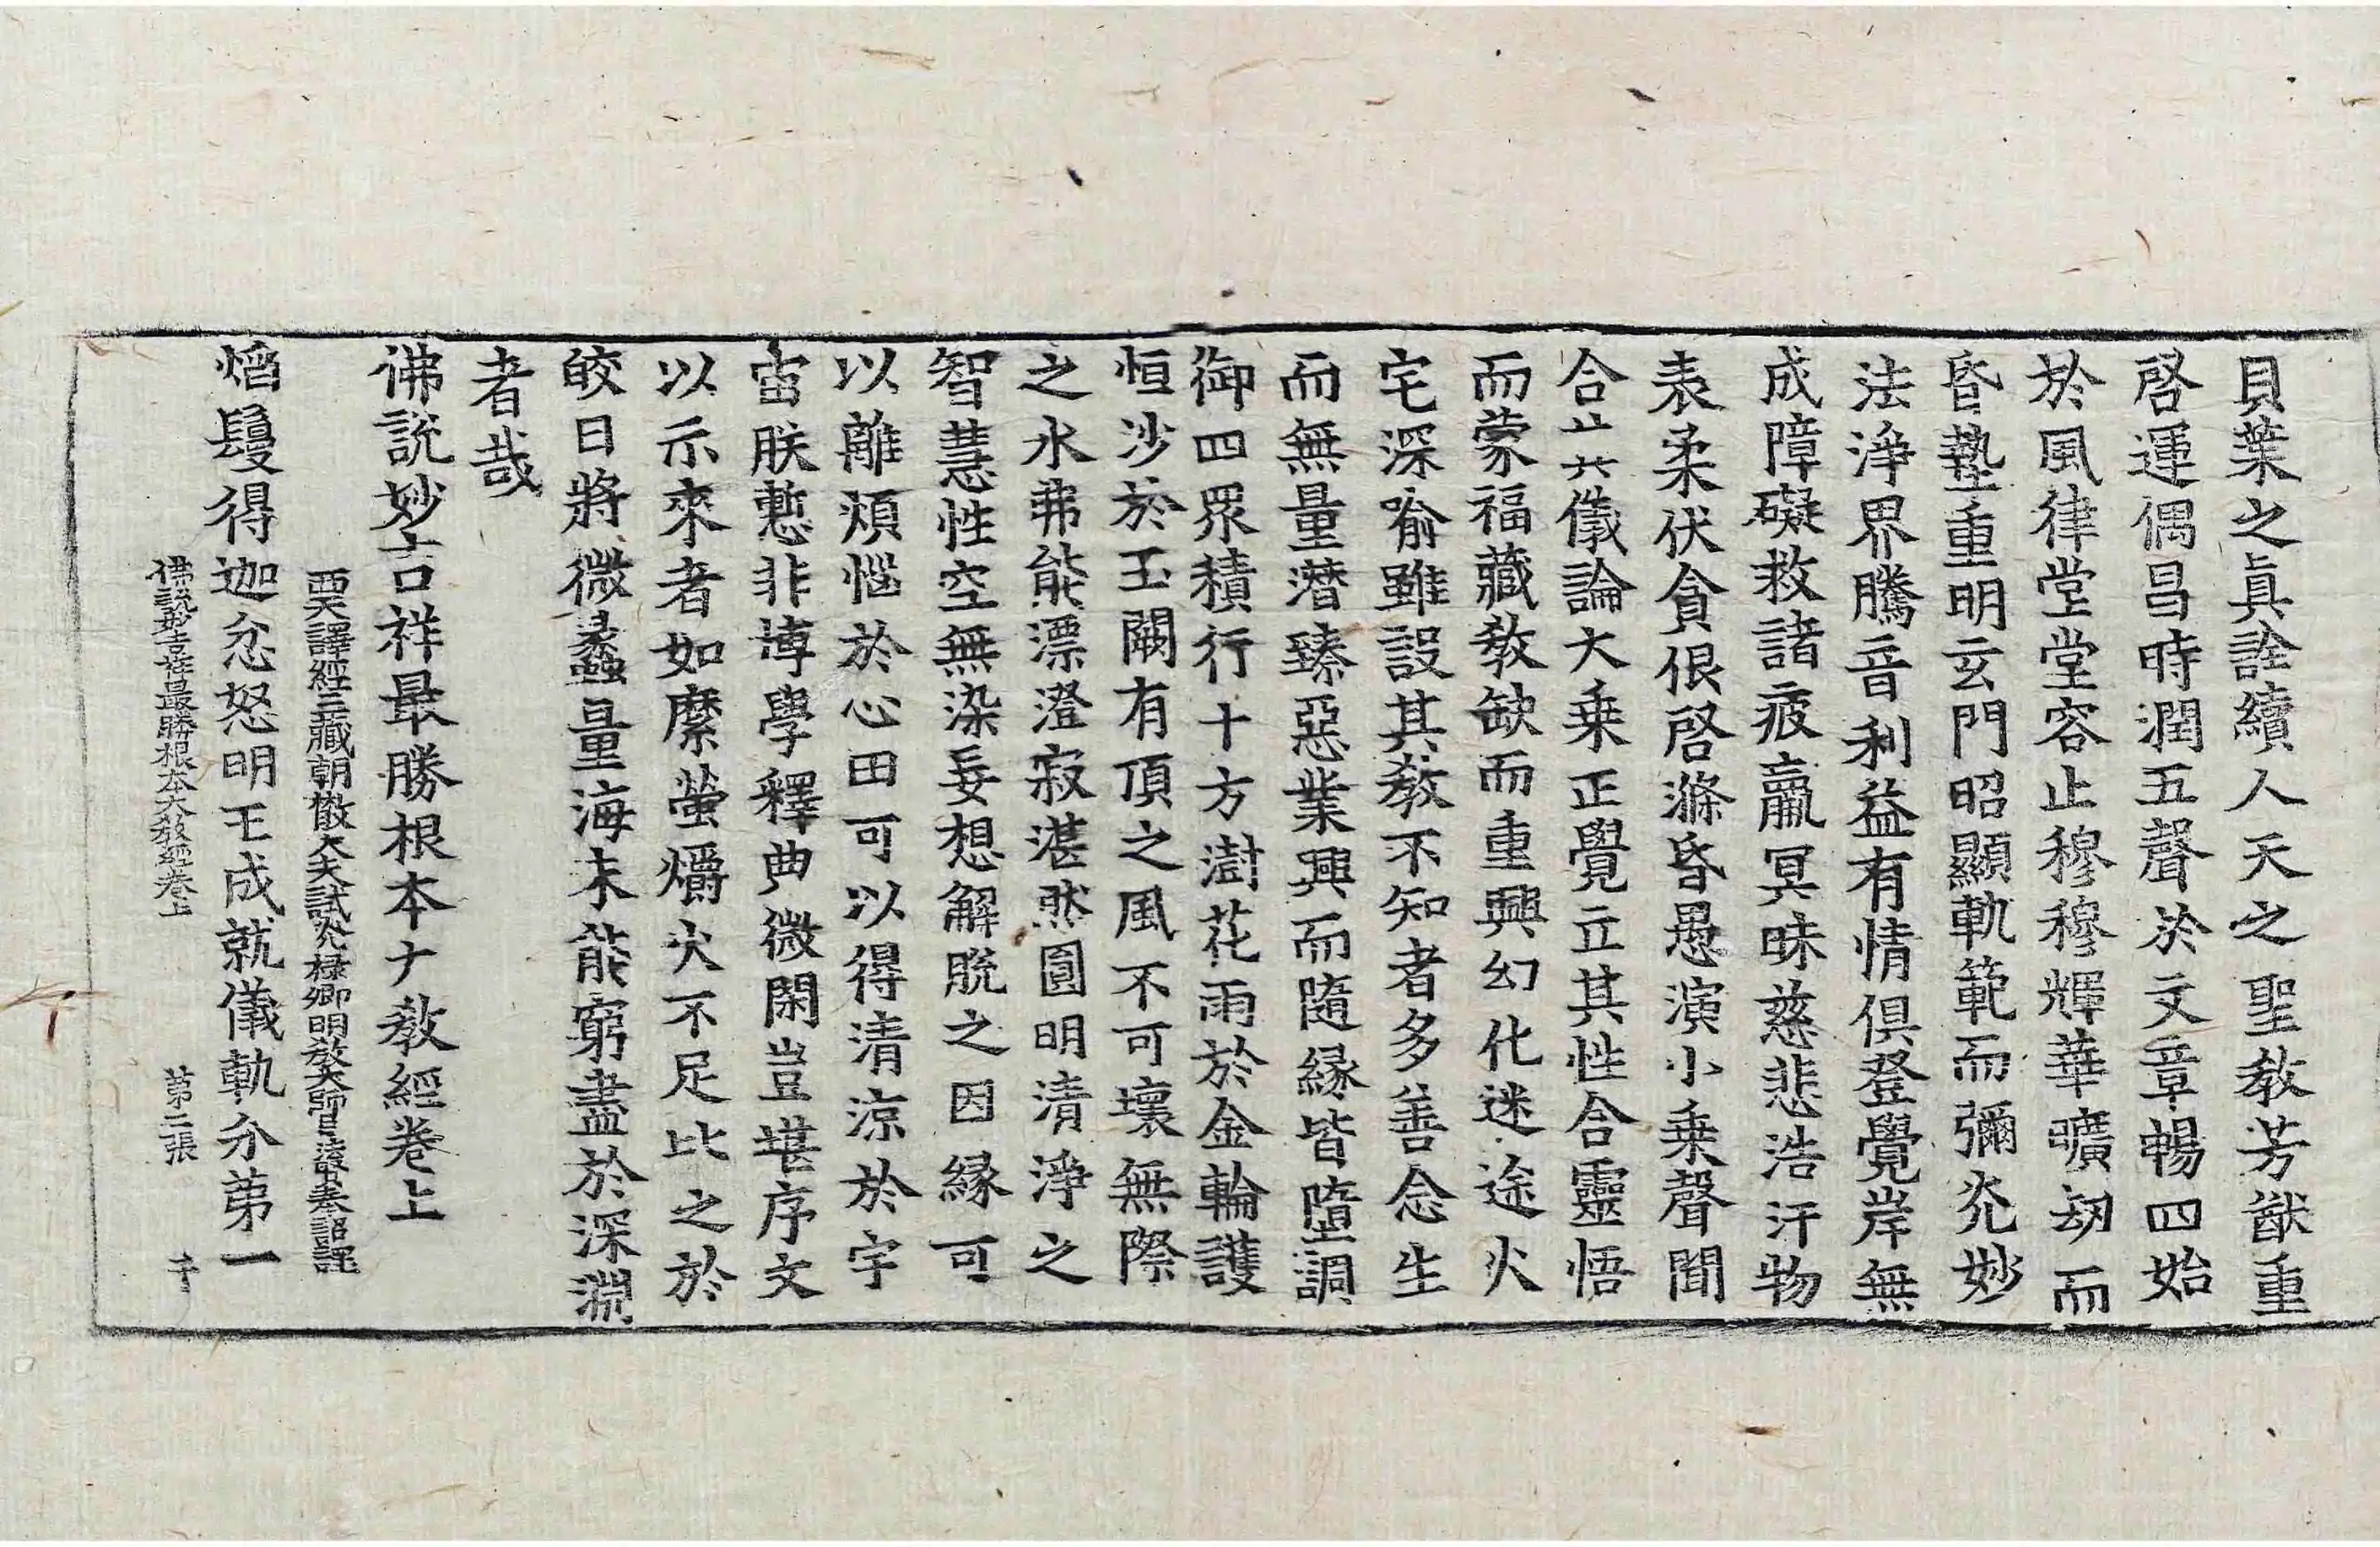 貝葉之眞詮續人天之聖教芳猷重
啓運偶昌時潤五聲於文章暢四始
於風律堂堂容止穆穆輝華曠劫而
昏蟄重明玄門昭顯軌範而彌光妙
法淨界騰音利益有情俱登覺岸無
成障礙救諸疲羸冥昧慈悲浩汗物
表柔伏貪佷啓滌昏愚演小乗聲聞
合儀論大乗正覺立其性合靈悟
而蒙福藏教缺而重興幻化迷途火
宅深喻雖設其教不知者多善念生
而無量潛臻惡業興而隨緣皆墮調
御四眾積行十方澍花雨於金輪護
恒沙於玉闕有頂之風不可壞無際
之水弗能漂澄寂湛然圓明清淨之
智慧性空無染妄想解脫之因緣可
以離煩惱於心田可以得清涼於宇
宙朕慙非博學釋典微閑豈堪序文
以示來者如縻螢爝火不足比之於
皎日將微蠡量海未能窮盡於深淵
者哉
佛說妙吉祥最勝根本大教經卷上
西天譯經三藏朝散大夫試光祿卿明教大師臣法賢奉詔譯
焰鬘得迦忿怒明王成就儀軌分第一
佛說妙吉祥最勝根本大教經卷上 第二張 千